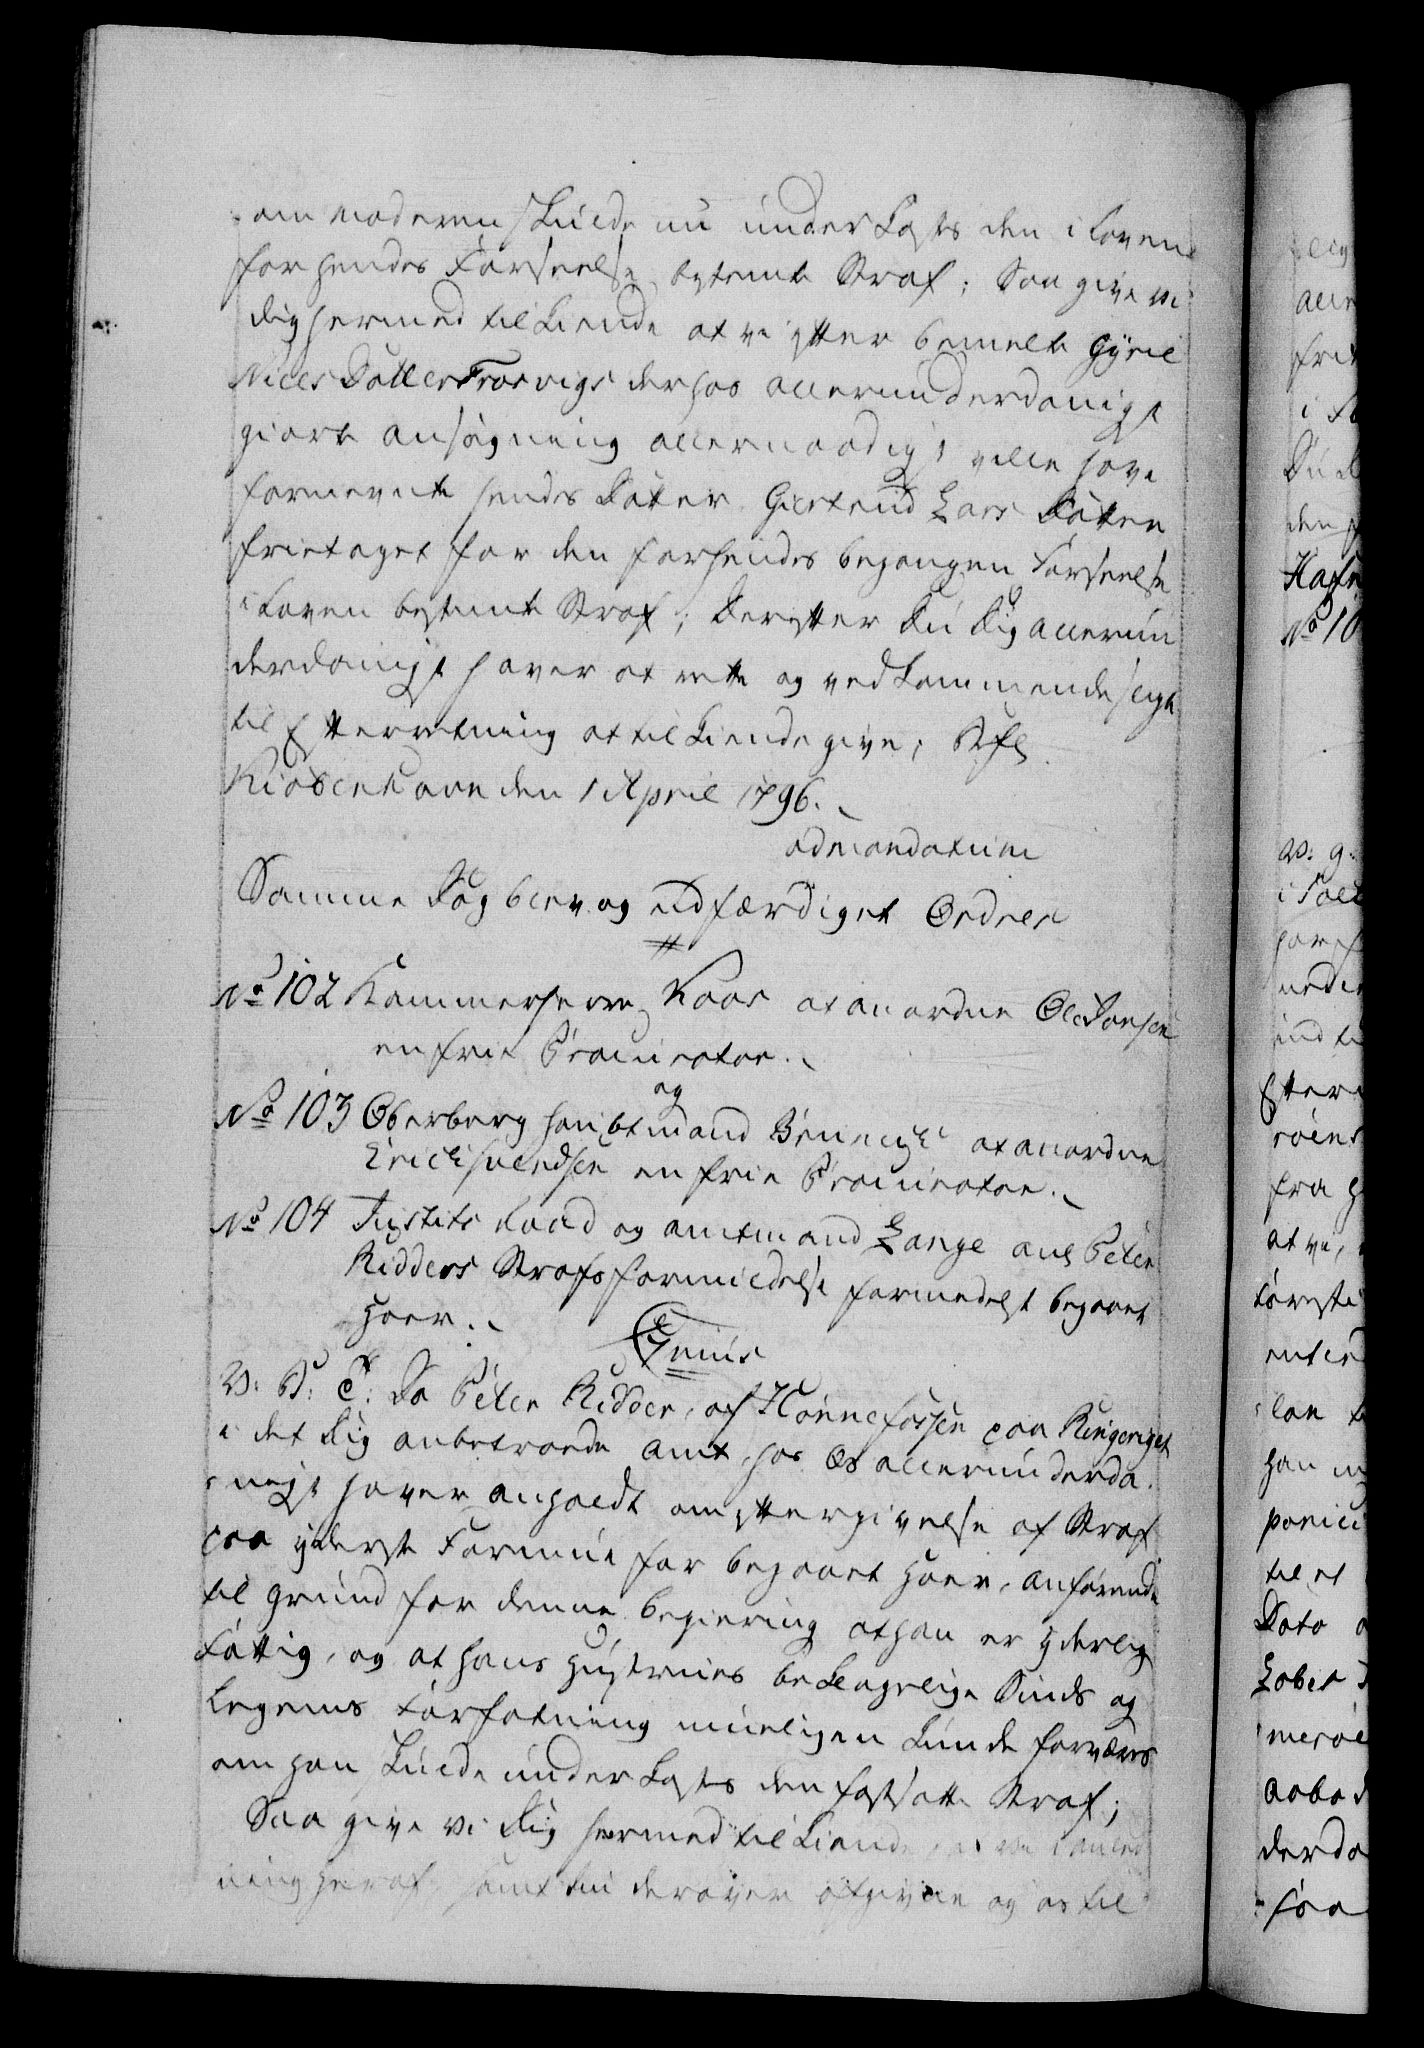 om moderen skulde nu underkastes den i Loven
for hendes Forseelse bestemte Straf; Saa give vi
dig hermed tilkiende at vi efter bemelte Gyril
Niels Datter Frosvigs derhos allerunderdanigst
giorte ansøgning allernaadigst ville have
formeente hendes Datter Giertrud Lars Datter
frietaget for den for hendes begangen Forseelse
i Loven bestemte Straf; Derefter Du Dig allerun
derdanigst haver at rette og vedkommende sligt
til Efterretning at tilkiendegive; Bfl
Kiøbenhavn den 1 April 1796.
ad mandatum
Samme Dag blev og udfærdiget Ordrer
No 102 Kammerherre Kaas at anordne Ole Jonsen
en frie Procurator.
og
No 103 Oberberg haubtmand at anordne
Erich svendsen en frie Procurator.
No 104 Justits Raad og amtmand Lange anl Peter
Ridders Strafs formildelse formedelst begaaet
Hoer.
Genus
V: P: T: Da Peter Ridder, af Hønnefossen paa Ringeriget
i det Dig anbetroede Amt, hos Os allerunderda
nigst haver anholdt om eftergivelse af Straf
paa yderste Formue for begaaet Hoer, anførende
til grund for denne begiering at han er yderlig
fattig, og at hans Hustrues beklagelige Sinds og
Legems Forfatning mueligen kunde forværres
om han skulde underkastes den fastsatte Straf;
Saa give Vi Dig hermed tilkiende, at vi i anled
ning heraf samt din derover afgivne og os til